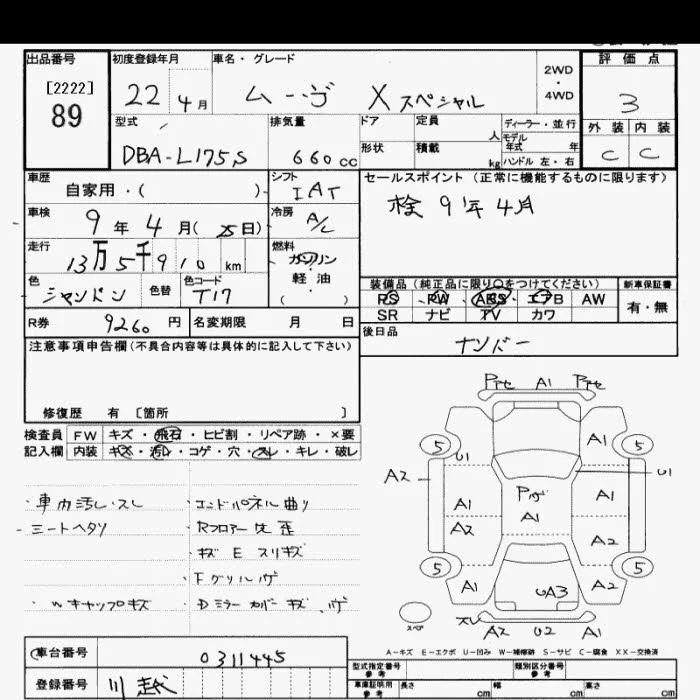 出品番号
[2222]
89
初度登録年月
22 4月
車名・グレード
ムーヴ X スペシャル
2WD
・
4WD
評価点
3
外装 内装
C C
型式
DBA-L175S
排気量
660cc
ドア
形状
定員
人
積載
kg
ディーラー・並行
モデル
年式 年
ハンドル 左・右
車歴
自家用・( )
シフト
IAT
セールスポイント (正常に機能するものに限ります)
検 9年4月
車検
9年 4月(25日)
冷房
A/C
走行
13万5千910km
燃料
ガソリン
・
軽油
( )
色
シャンパン
色替
色コード
T17
装備品 (純正品に限り○をつけてください)
PS PW ABS エアB AW
SR ナビ TV カワ
新車保証書
有・無
R券
9260円
名変期限 月 日
後日品
注意事項申告欄 (不具合内容等は具体的に記入して下さい)
修復歴 有 〔箇所 〕
検査員
記入欄
FW キズ・飛石・ヒビ割・リペア跡・×要
内装 キズ・汚レ・コゲ・穴・スレ・キレ・破レ
・車内汚し・スレ
・エンドパネル曲り
・シートヘタリ
・Rフロアー
・キズ E スリキズ
・Fグリル
・Wキャップキズ
・Dミラーカバーキズ
A1
A1
5 U1 A1 5
A2 U1
A1 A1 A1
A2 A2
5 5
A1 UA3 A2
スペア
A2 U2 A1
A-キズ E-エクボ U-凹み W-補修跡 S-サビ C-腐食 XX-交換済
車台番号
0311445
登録番号
川越
型式指定番号
参考
類別区分番号
参考
車庫証明用
参考
長さ cm 幅 cm 高さ cm